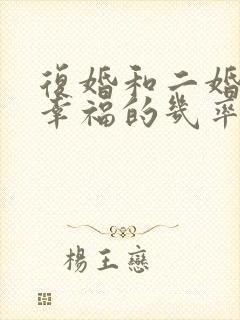 復婚和二婚
幸福的幾率
楊王戀